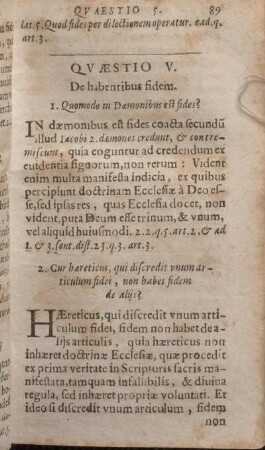 QVAESTIO 5. 89
lat. 5. Quod fides per dilectionem operatur. ead. q.
art. 3.
QVÆSTIO V.
De habentibus fidem.
1. Quomodo in Dæmonibus est fides?
IN dæmonibus est fides coacta secundũ
illud Iacobi 2. dæmones credunt, & contre-
miscunt, quia coguntur ad credendum ex
euidentia signorum, non rerum: Vident
enim multa manifesta indicia, ex quibus
percipiunt doctrinam Ecclesiæ à Deo es-
se, sed ipsas res, quas Ecclesia docet, non
vident, puta Deum esse trinum, & vnum,
vel aliquid huiusmodi. 2. 2. q. 5. art. 2. & ad
1. & 3. sent. dist. 23. q. 3. art. 3.
2. Cur hæreticus, qui discredit vnum ar-
ticulum fidei, non habet fidem
de alijs?
HÆreticus, qui discredit vnum arti-
culum fidei, fidem non habet de a-
lijs articulis, quia hæreticus non
inhæret doctrinæ Ecclesiæ, quæ procedit
ex prima veritate in Scripturis sacris ma-
nifestata, tamquam infallibili, & diuina
regula, sed inhæret propriæ voluntati. Et
ideo si discredit vnum articulum, fidem
non